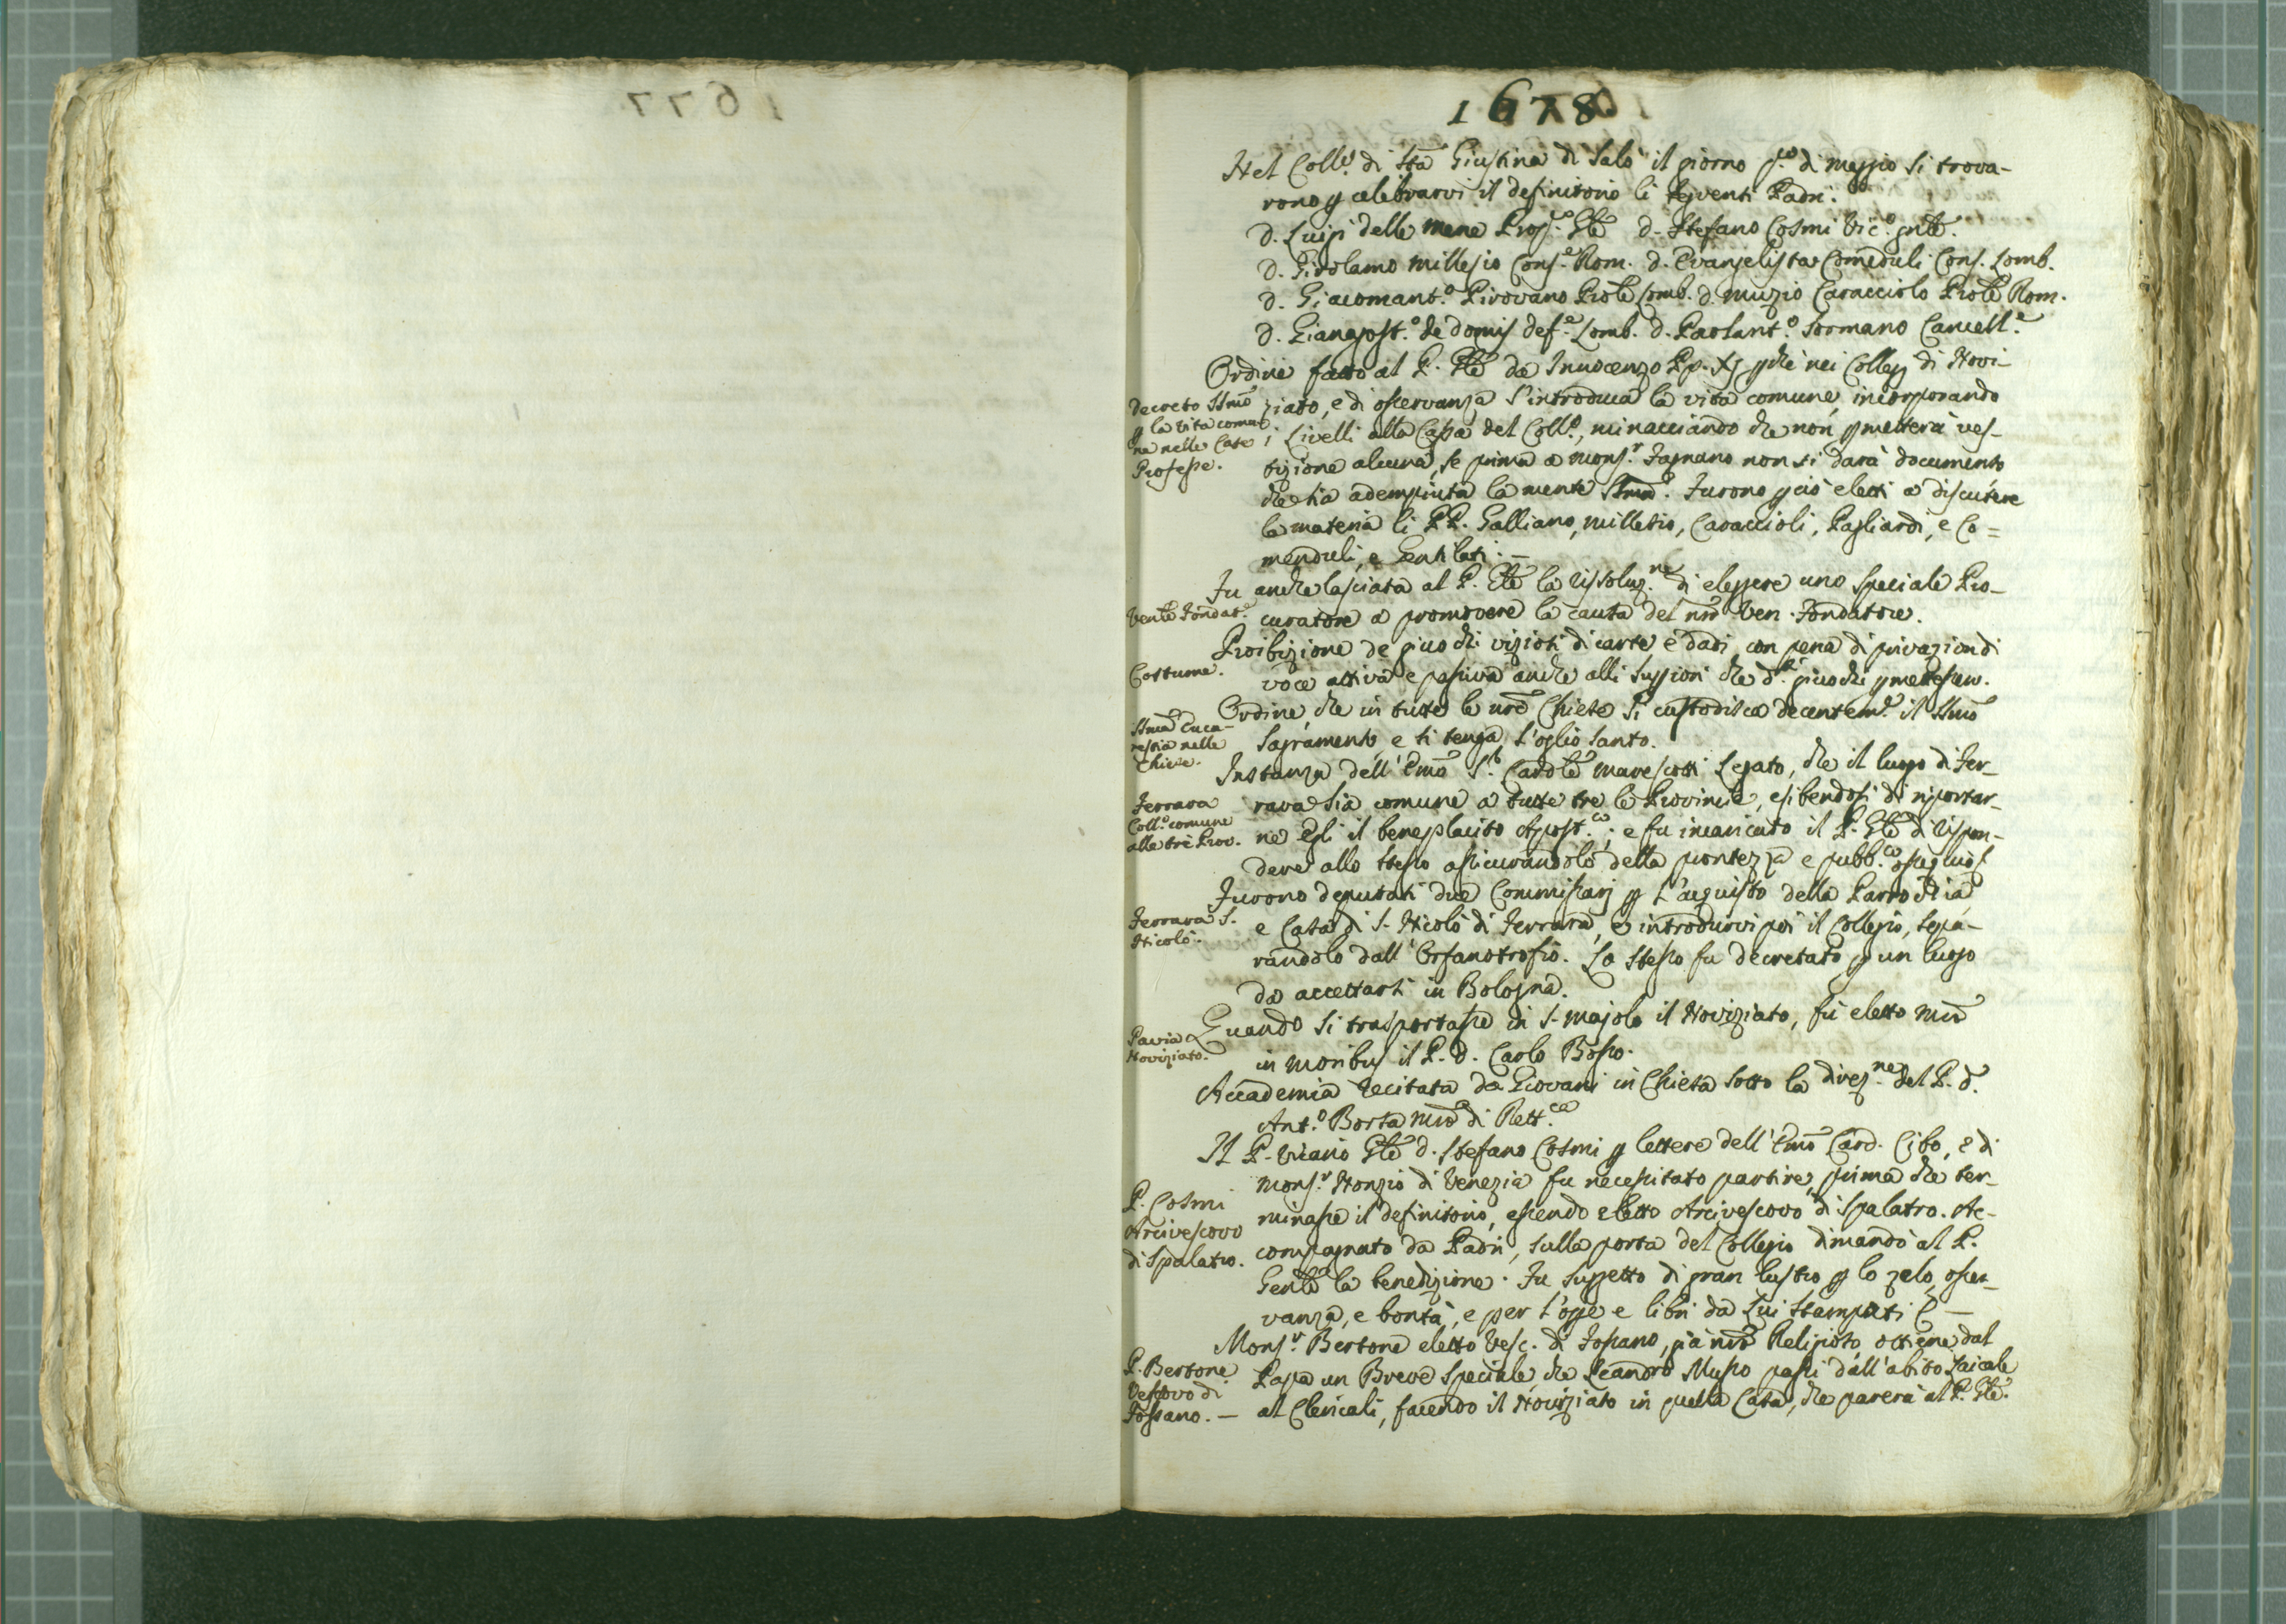 1678.
Nel Coll.º di Sta Giustina di Salò il giorno p.º di maggio si trova-
rono p celebrarvi il definitorio li seguenti Padri.
D. Luigi delle mene Prop.º Gle D. Stefano Cosmi Vic.º gnle.
D. Girolamo Millesio Cons.e Rom. D. Evangelista Comenduli Cons. Lomb.
D. Giacomant.º Pirovano Prole Lomb. D. Muzio Caracciolo Prole Rom.
D. Gianagost.º de Domis def.e Lomb. D. Paolant.º Sormano Cancell.e
Ordine fatto al P. Gle da Innocenzo Pp. XI pche nei Collegj di Novi-
Decreto SSmo
p la vita comu-
ne nelle Case
Professe.
ziato, e di osservanza s'introduca la vita comune, incorporando
i Livelli alla Cassa del Coll.º, minacciando che non pmetterà ves-
tizione alcuna, se prima a Mons.r Fagnano non si darà documento
che sia adempiuta la mente SSma. Furono pciò eletti a discutere
la materia li PP. Galliano, Millesio, Caraccioli, Pagliardi, e Co=
menduli, e Gentilati. —
Fu anche lasciata al P. Gle la rissoluz.ne di eleggere uno speciale Pro-
Venle Fondat.e
curatore a promovere la causa del nro Ven. Fondatore.
Proibizione de giuochi viziosi di carte e dadi, con pena di privazion di
Costume.
voce attiva e passiva anche alli Suppiori che d.ti giuochi pmettessero.
Ordine, che in tutte le nre Chiese si custodisca decentem.e il SSmo
SSma Euca-
restia nelle
Chiese.
Sagramento, e si tenga l'oglio santo.
Instanza dell'Emo S.r Cardle Marescotti Legato, che il luogo di Fer-
Ferrara
Coll.º comune
alle tre Prov.
rara sia comune a tutte tre le Provincie, esibendosi di riportar-
ne Egli il beneplacito Apost.co; e fu incaricato il P. Gle di rispon-
dere allo stesso assicurandolo della prontezza e pubb.co ossequio.
Furono deputati due Commissarj p l'acquisto della Parrochia
Ferrara S.
Nicolò.
e Casa di S. Nicolò di Ferrara, e introdurvi poi il Collegio, sepa-
randolo dall'Orfanotrofio. Lo stesso fu decretato p un luogo
da accettarsi in Bologna.
Pavia
Noviziato.
Quando si trasportasse in S. Majolo il Noviziato, fù eletto Mro
in moribus il P. D. Carlo Bosso.
Accademia recitata da Giovani in Chiesa sotto la direz.ne del P. D.
Ant.º Borsa Mro di Rett.ca
Il P. Vicario Gle D. Stefano Cosmi p lettere dell'Emo Card. Cibo, e di
Mons.r Nonzio di Venezia fu necessitato partire, prima che ter-
P. Cosmi
Arcivescovo
di Spalatro.
minasse il definitorio, essendo eletto Arcivescovo di Spalatro. Ac-
compagnato da Padri, sulla porta del Collegio dimandò al P.
Genle la benedizione. Fu suggetto di gran lustro p lo zelo, osser-
vanza, e bontà, e per l'opre e libri da Lui stampati
Mons.r Bertone eletto Vesc. di Fossano, già nro Religioso, ottiene dal
P. Bertone
Vescovo di
Fossano. —
Papa un Breve speciale, che Leandro Musso passi dall'abito Laicale
al Clericali, facendo il Noviziato in quella Casa, che parerà al P. Gle.